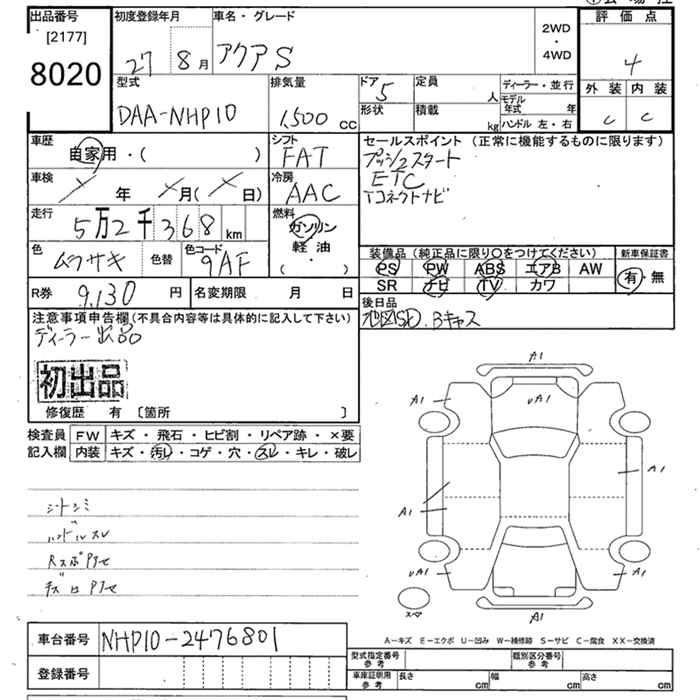 出品番号
[2177]
8020
初度登録年月
27 8月
車名・グレード
アクアS
2WD
・
4WD
評価点
4
外装 内装
C C
型式
DAA-NHP10
排気量
1,500 cc
ドア 5
定員 人
形状
積載 kg
ディーラー・並行
モデル年式 年
ハンドル 左・右
車歴
自家用・( )
シフト
FAT
セールスポイント(正常に機能するものに限ります)
プッシュスタート
ETC
Tコネクトナビ
車検
年 月( 日)
冷房
AAC
走行
5万2千368km
燃料
ガソリン
軽油
( ・ )
色
ムラサキ
色替
色コード
9AF
装備品(純正品に限り〇をつけてください)
PS PW ABS エアB AW
SR ナビ TV カワ
新車保証書
有・無
R券 9,130円
名変期限 月 日
後日品
地図SD.Bキャス
注意事項申告欄(不具合内容等は具体的に記入して下さい)
ディーラー出品
初出品
修復歴 有 [箇所 ]
検査員記入欄
FW キズ・飛石・ヒビ割・リペア跡・×要
内装 キズ・汚レ・コゲ・穴・スレ・キレ・破レ
シートシミ
ハンドルスレ
A1
A1 uA1 A1
A1
A1
uA1 A1
A1
スペア
A-キズ E-エクボ U-凹み W-補修跡 S-サビ C-腐食 XX-交換済
車台番号 NHP10-2476801
登録番号
型式指定番号 参考
類別区分番号 参考
車庫証明用 参考 長さ cm 幅 cm 高さ cm